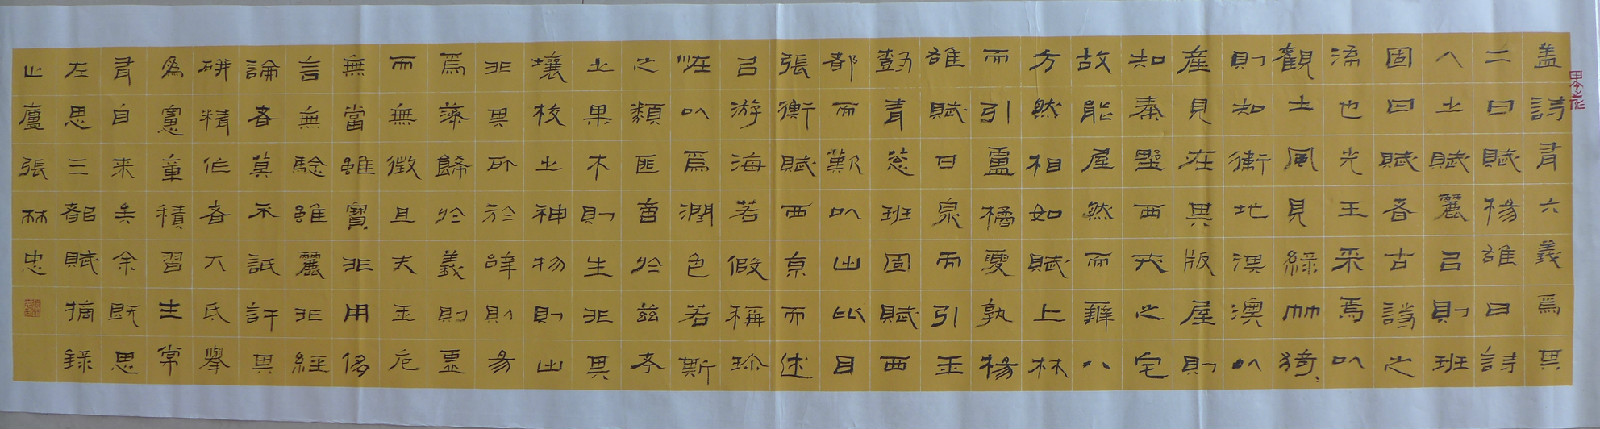 盖詩有六義焉其
二曰賦楊雄曰詩
人之賦麗吕則班
固曰賦者古詩之
流也先王采焉以
觀土風見綠竹猗
則知衛地淇澳以
產見在其版屋則
知秦野西戎之宅
故能居然而辨八
方然相如賦上林
而引盧橘夏孰楊
雄賦甘泉而引玉
樹青葱班固賦西
都而歎以出比目
張衡賦西京而述
吕游海若假稱珍
恠以爲潤色若斯
之類匪啻於茲考
之果木則生非其
壤校之神物則出
非其所於辭則易
爲藻飾於義則虛
而無徵且夫玉卮
無當雖寶非用侈
言無驗雖麗非經
論者莫不詆訐其
研精作者大氐舉
爲憲章積習生常
有自来矣余既思
左思三都賦摘録
止廬張林忠